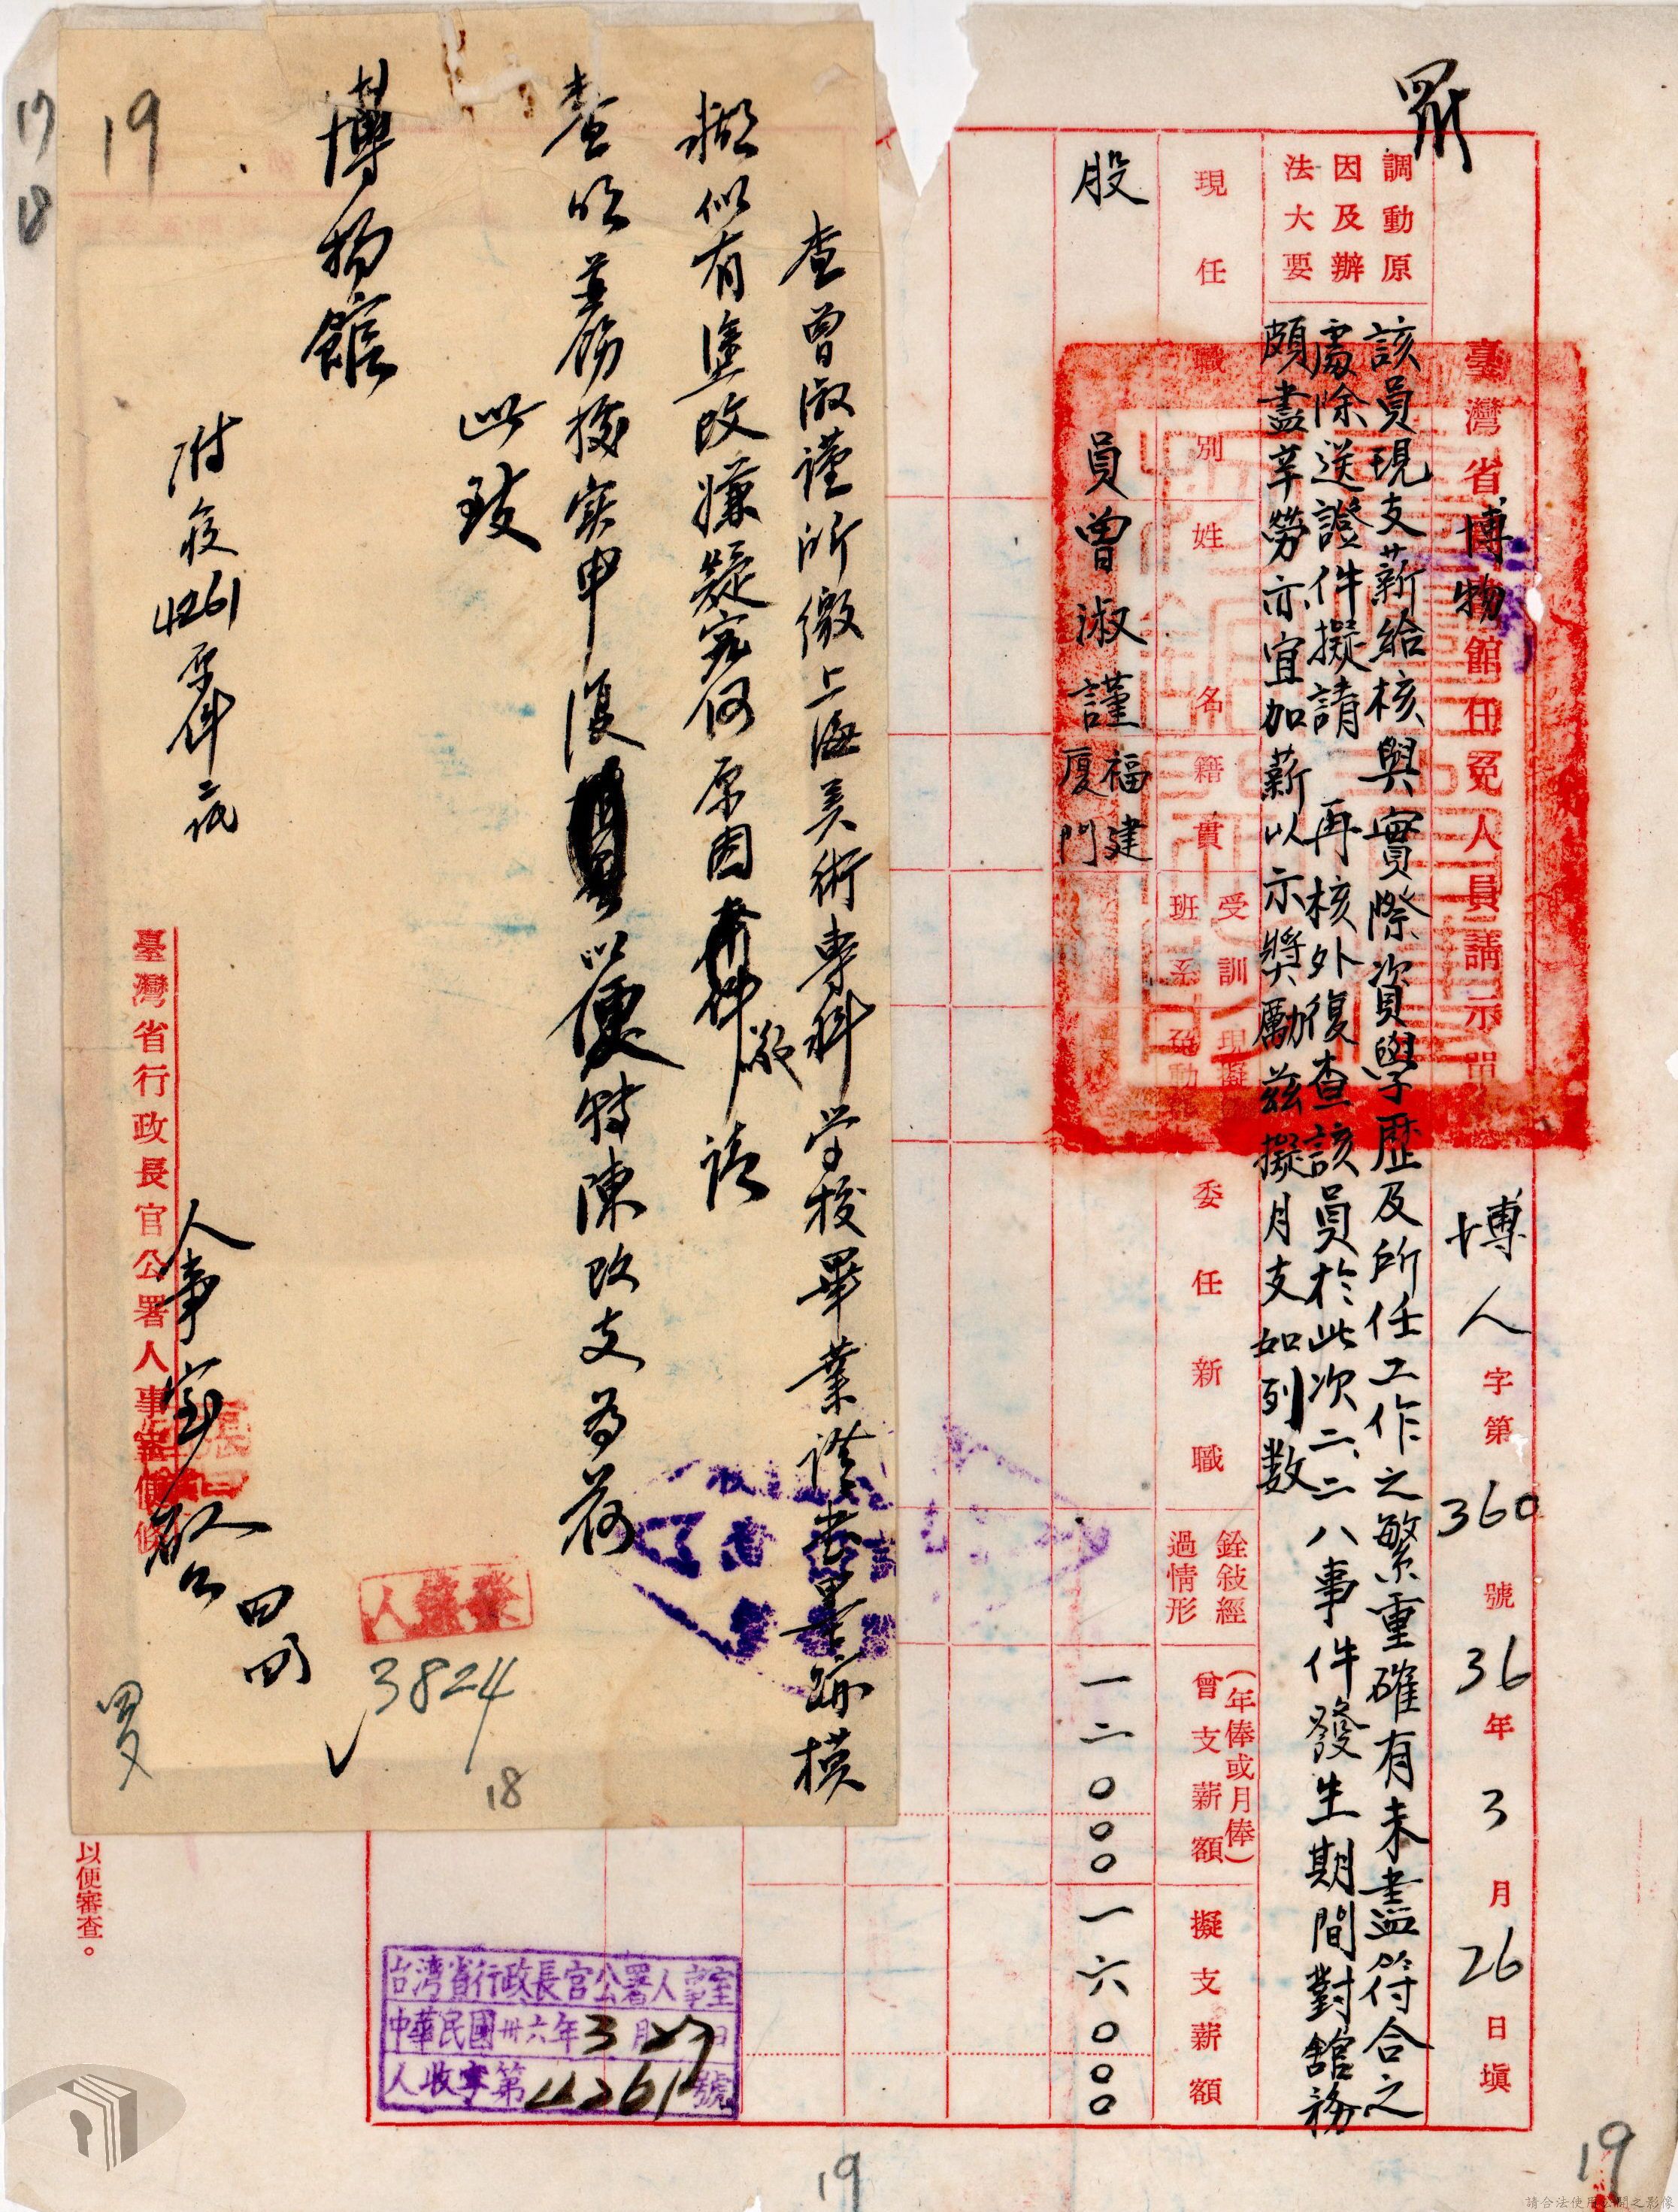 臺灣省博物館任免人員請示單
博人字第360號36年3月26日填
調動原因及辦法大要
該員現支薪給核與實際資與學歷及所任工作之繁重確有未盡符合之
處除送證件擬請 再核外復查該員於此次二、二八事件發生期間對館務
頗盡辛勞亦宜加薪以示獎勵茲擬月支如列數
現任職別
姓名
籍貫
受訓班系
委任新職
銓敍經過情形
(年俸或月俸)
曾支薪額
擬支薪額
股員
曾淑謹
福建廈門
一二〇〇〇
一六〇〇〇
查曾淑謹所繳上海美術專科學校畢業證書墨跡模
糊似有塗改嫌疑究何原因 請
查明並飭援實申復 以便轉陳改支為荷
此致
博物館
附發4261原件二張
人事室啟
臺灣省行政長官公署人事室便條
3824
18
19
17
18
以便審查。
台灣省行政長官公署人事室
中華民國卅六年3月27日
人收字第4261號
19
19
請合法使用公開之影像